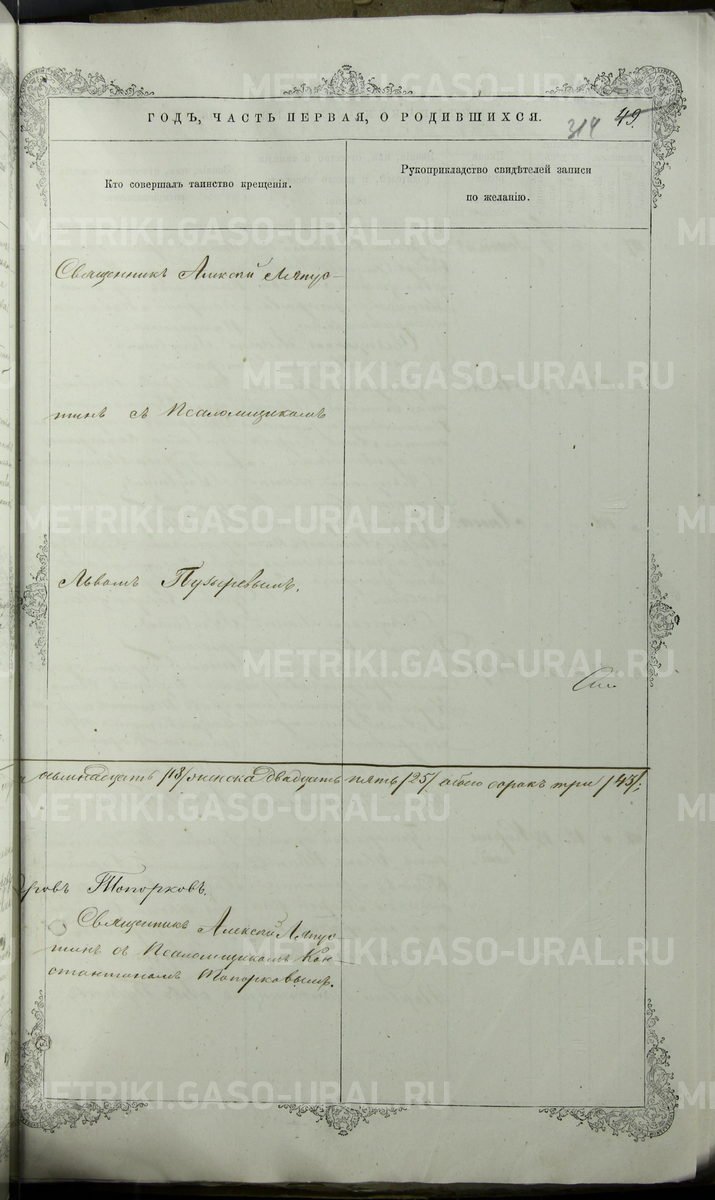 METRIKI.GASO-URAL.RU
ГОДЪ, ЧАСТЬ ПЕРВАЯ, О РОДИВШИХСЯ.
314 49.
Кто совершалъ таинство крещенія.
Рукоприкладство свидѣтелей записи
по желанію.
Священникъ Алексій Ляпус-
тинъ съ Псаломщикомъ
Львомъ
восемнадцать /18/ женска двадцать пять /25/ обоего сорокъ три /43/.
Топорковъ.
Священникъ Алексій Ляпус-
тинъ съ Псаломщикомъ Кон-
стантиномъ Топорковымъ.